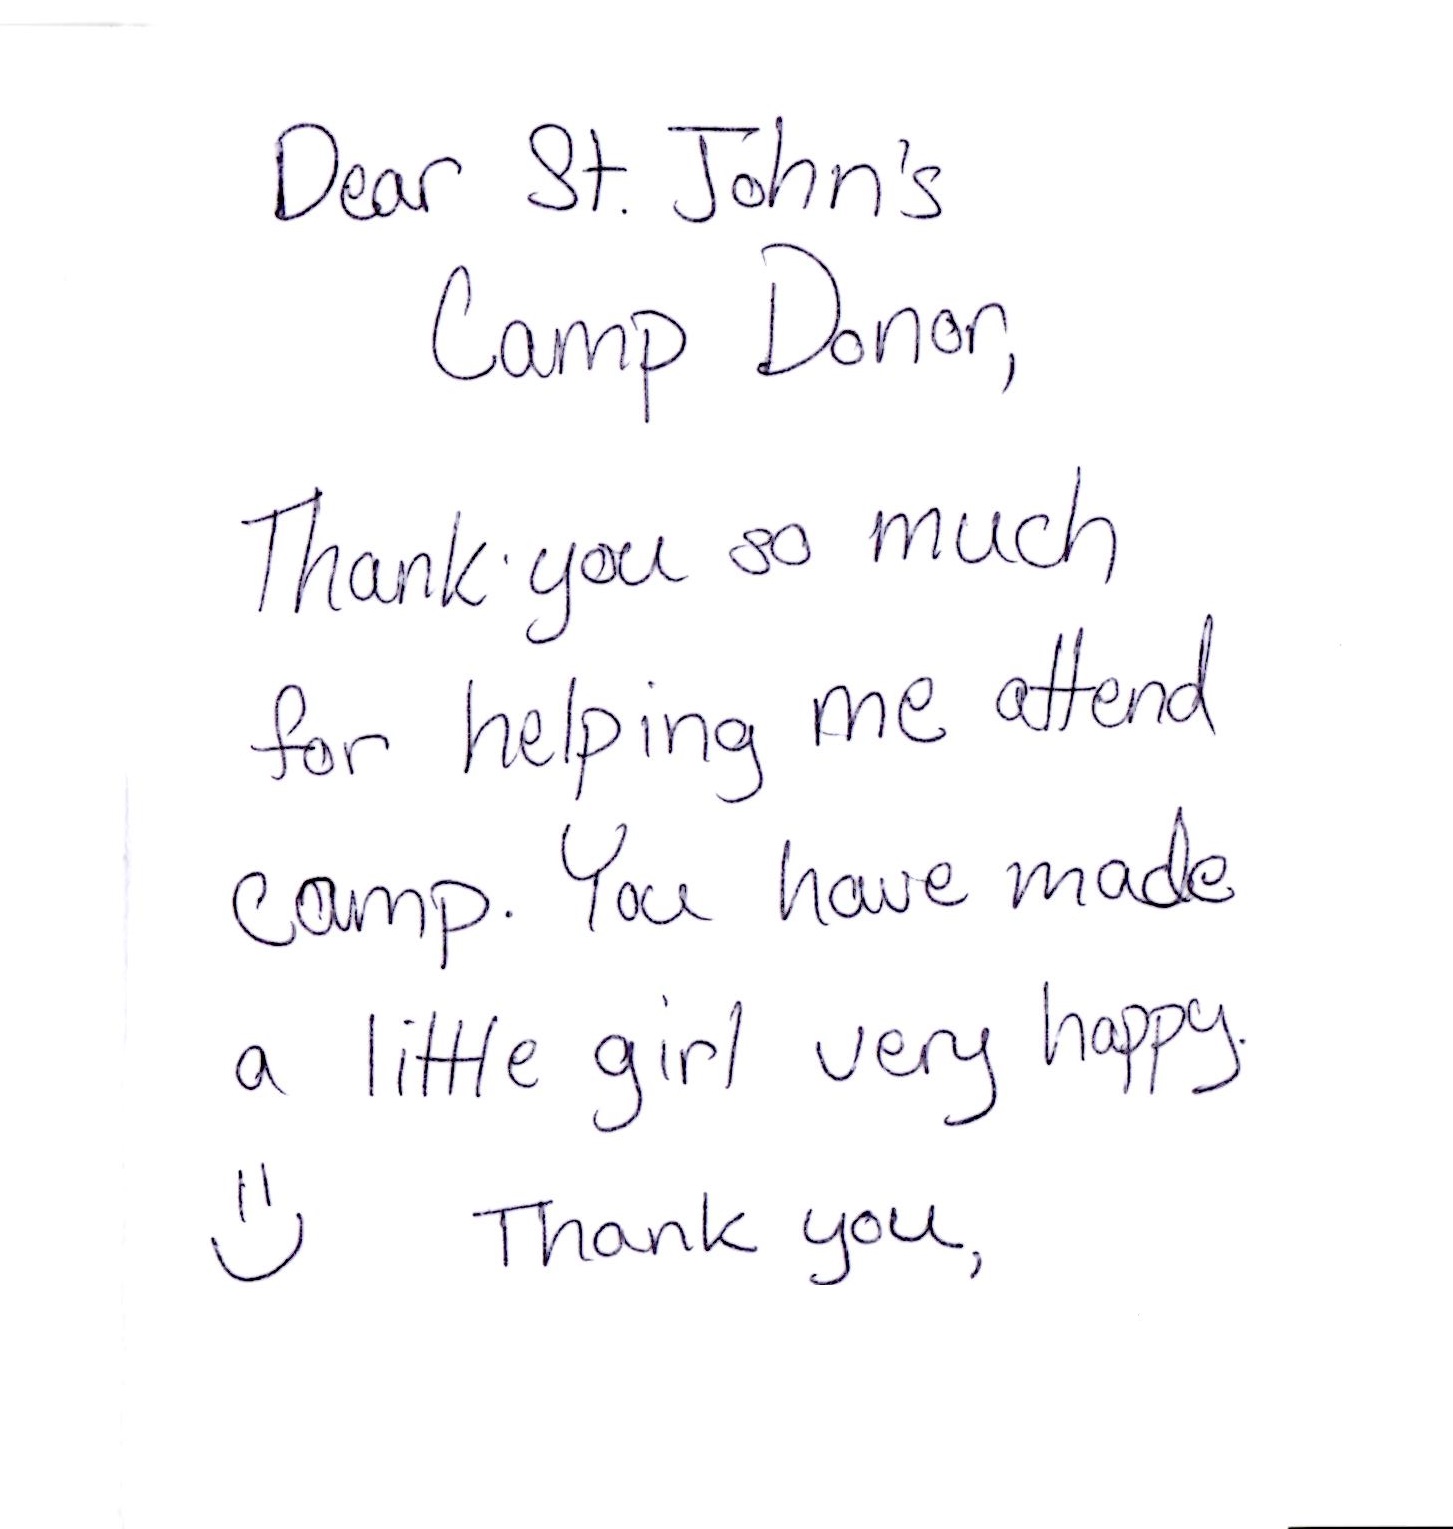 Dear St. John's
Camp Donor,
Thank you so much
for helping me attend
camp. You have made
a little girl very happy.
Thank you,